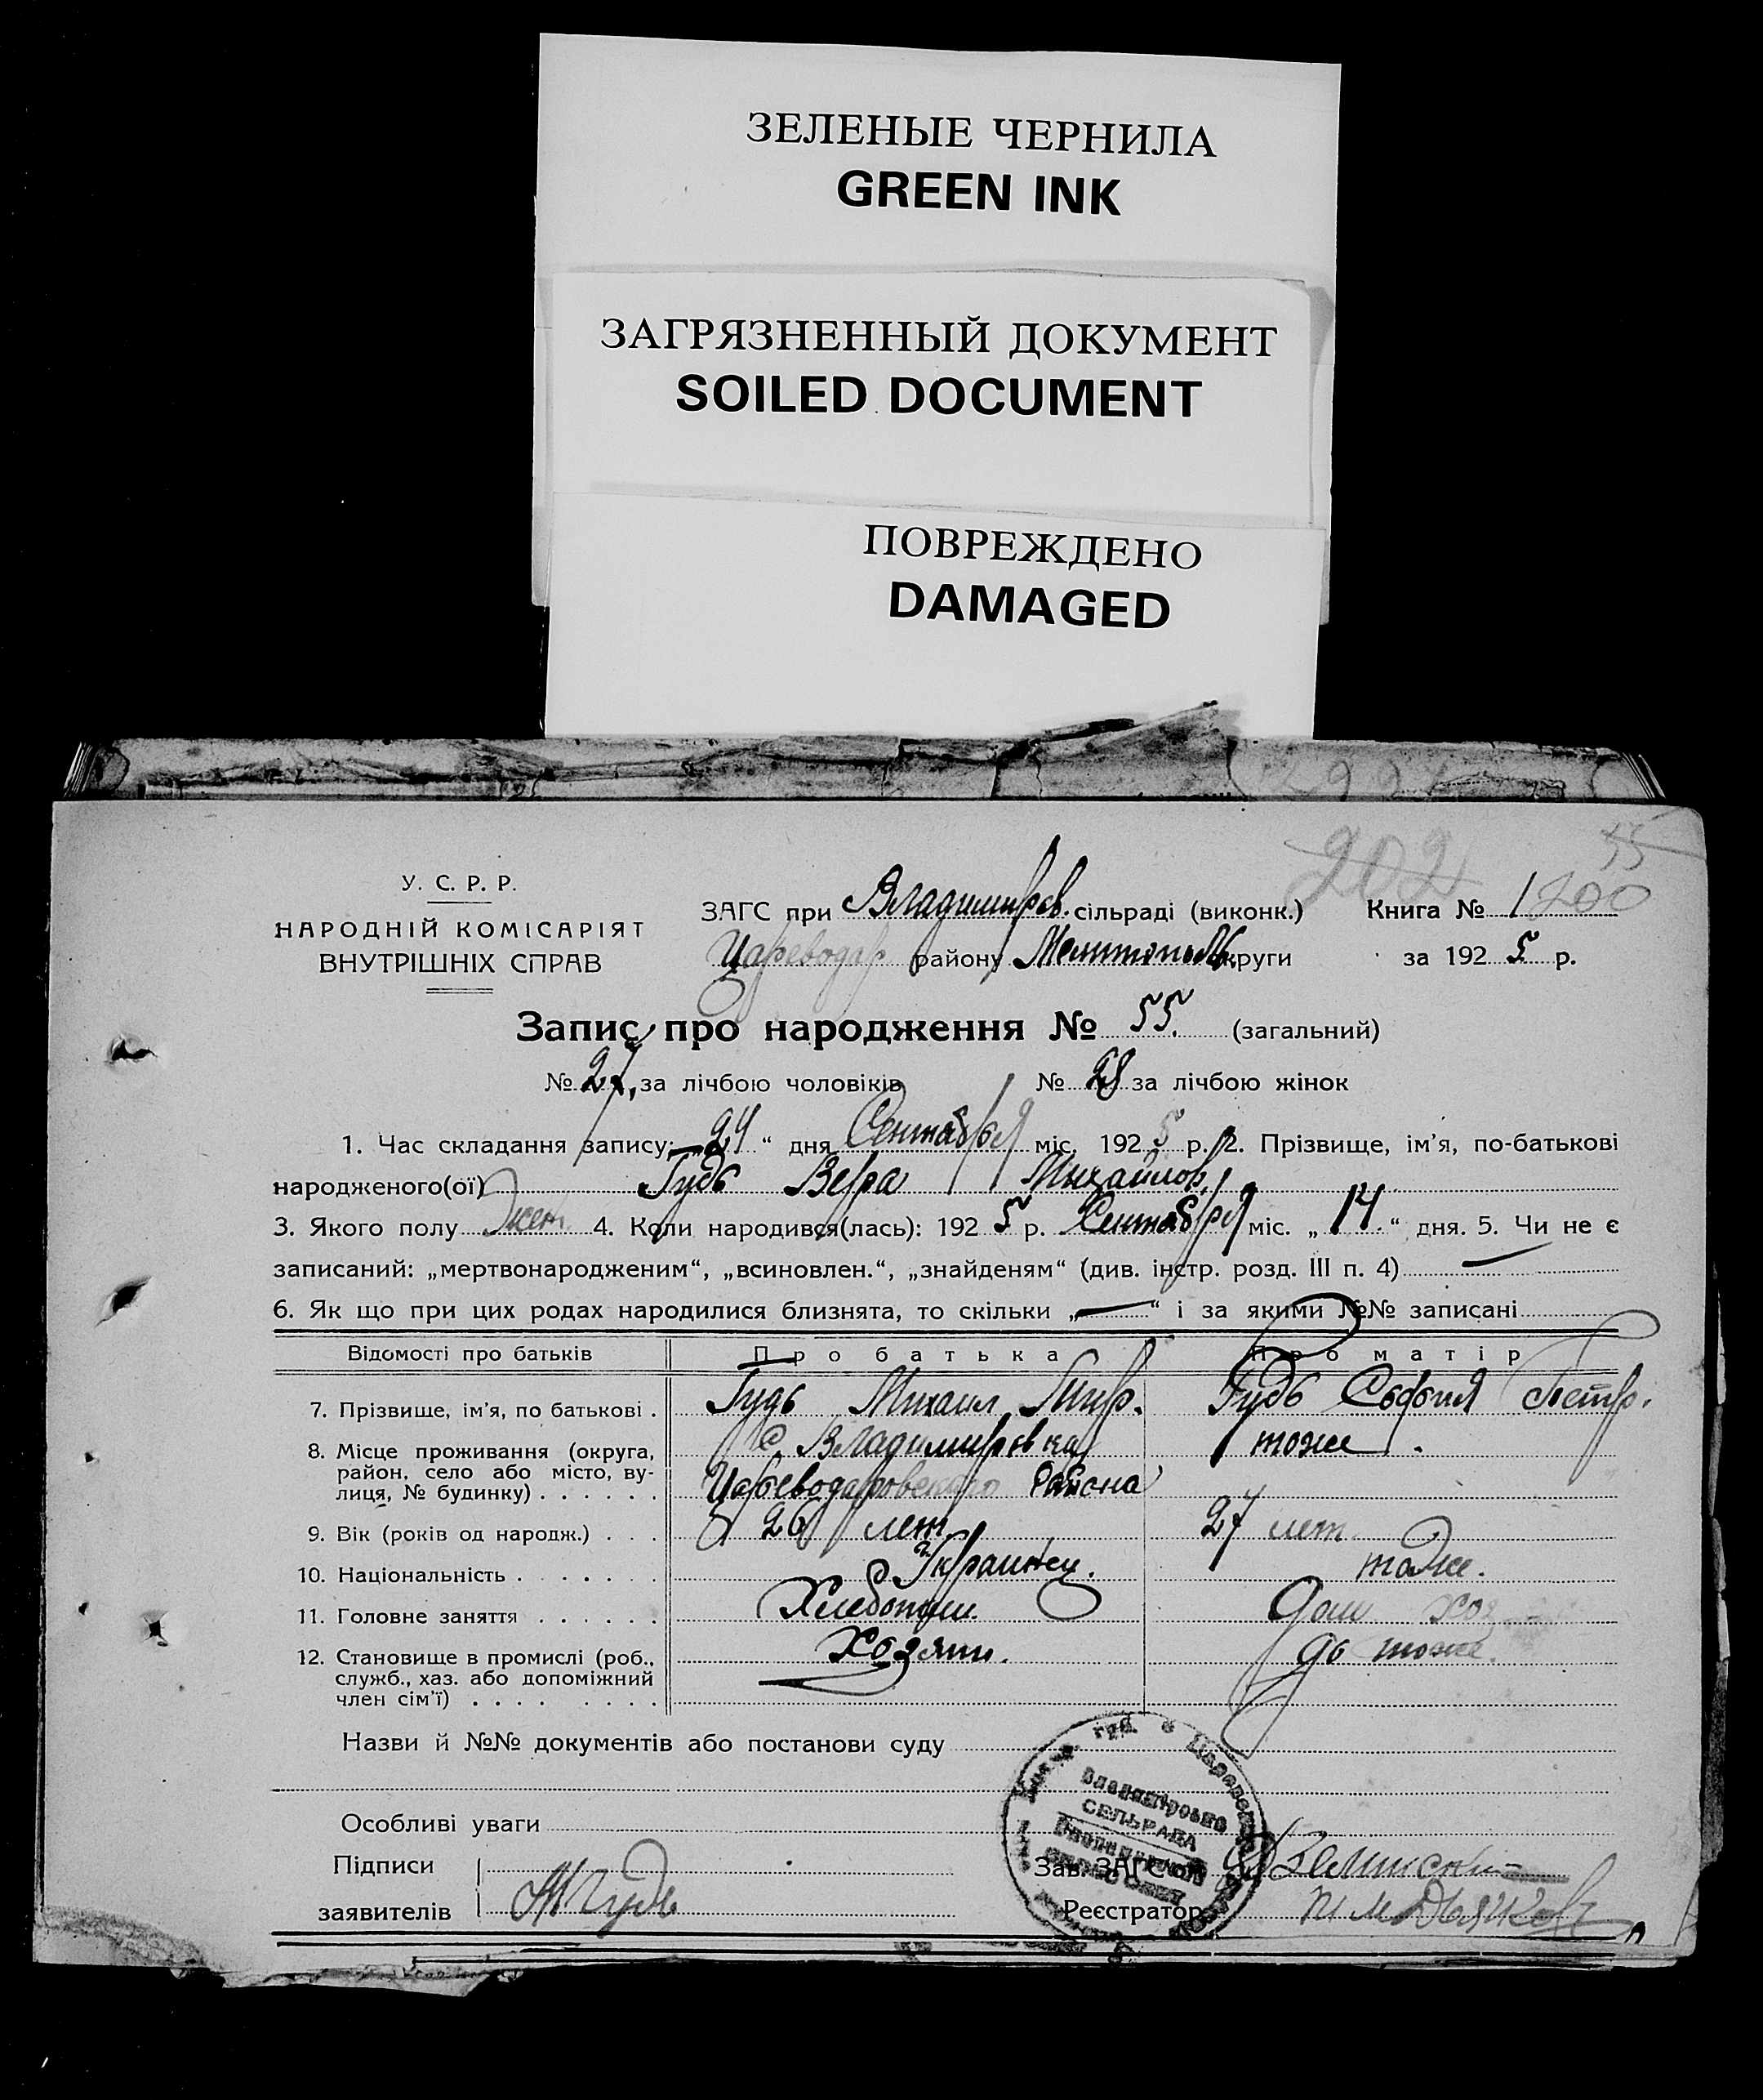 ЗЕЛЕНЫЕ ЧЕРНИЛА
GREEN INK
ЗАГРЯЗНЕННЫЙ ДОКУМЕНТ
SOILED DOCUMENT
ПОВРЕЖДЕНО
DAMAGED
202 55
У. С. Р. Р.
НАРОДНІЙ КОМІСАРІЯТ
ВНУТРІШНІХ СПРАВ
ЗАГС при Владимиров. сільраді (виконк.) Книга № 1 200
Цареводар району Мелитополь. округи за 1925 р.
Запис про народження № 55. (загальний)
№ 27, за лічбою чоловіків № 28 за лічбою жінок
1. Час складання запису: „24“ дня Сентября міс. 1925 р. 2. Прізвище, ім’я, по-батькові
народженого(ої) Гудь Вера Михайлов.
3. Якого полу жен. 4. Коли народився(лась): 1925 р. Сентября міс. „14“ дня. 5. Чи не є
записаний: „мертвонародженим“, „всиновлен.“, „знайденям“ (див. інстр. розд. III п. 4) —
6. Як що при цих родах народилися близнята, то скільки „—“ і за якими №№ записані
Відомості про батьків Про батька Про матір
7. Прізвище, ім’я, по батькові . Гудь Михаил Гудь София Петр.
8. Місце проживання (округа, с Владимировка тоже.
район, село або місто, ву- Цареводаровского района
лиця, № будинку) . . . . . .
9. Вік (років од народж.) . . . 26 лет 27 лет.
10. Національність . . . . . . . Украинец. тоже.
11. Головне заняття . . . . . . Хлебопаш. Дом хоз
12. Становище в промислі (роб., Хозяин. до тоже.
служб., хаз. або допоміжний
член сім’ї) . . . . . . . .
Назви й №№ документів або постанови суду
Особливі уваги
СЕЛЬРАДА
Підписи Зав. ЗАГС'ом
заявителів М Гудь Реєстратор